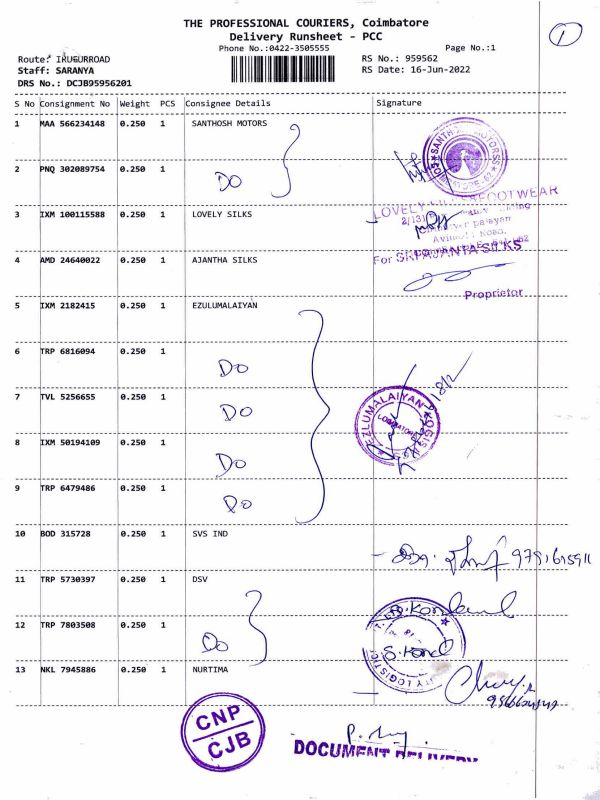 THE PROFESSIONAL COURIERS, Coimbatore
Delivery Runsheet - PCC
Phone No.:0422-3505555
Page No.:1
1
Route: IRUGURROAD
RS No.: 959562
Staff: SARANYA
RS Date: 16-Jun-2022
DRS No.: DCJB95956201
S No Consignment No Weight PCS Consignee Details Signature
1 MAA 566234148 0.250 1 SANTHOSH MOTORS
2 PNQ 302089754 0.250 1 DO
3 IXM 100115588 0.250 1 LOVELY SILKS
4 AMD 24640022 0.250 1 AJANTHA SILKS
For SRI AJANTA SILKS
Proprietor
5 IXM 2182415 0.250 1 EZULUMALAIYAN
6 TRP 6816094 0.250 1 DO
7 TVL 5256655 0.250 1 DO
EZLUMALAIYAN
8 IXM 50194109 0.250 1 DO
9 TRP 6479486 0.250 1 DO
10 BOD 315728 0.250 1 SVS IND
11 TRP 5730397 0.250 1 DSV
12 TRP 7803508 0.250 1 DO
13 NKL 7945886 0.250 1 NURTIMA
CNP
CJB
DOCUMENT DELIVERY